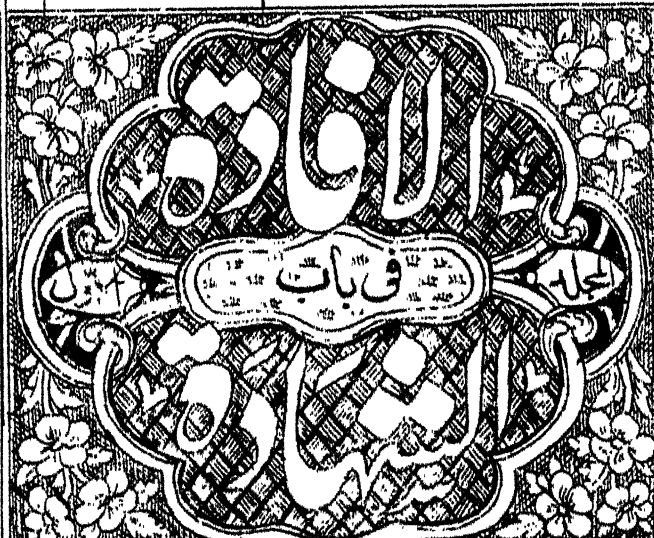 الافادة
مجلد فی باب اول
الشهادة